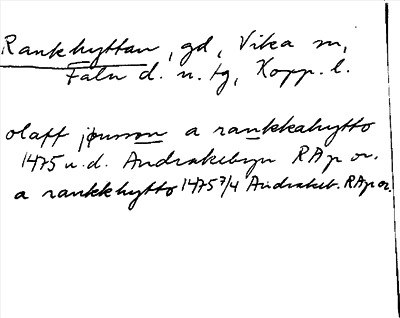 Rankhyttan, gd, Vika sn,
Falu d. n. tg, Kopp. l.
olaff jønsson a rankkahytto
1475 u.d. Andrakebyn RAp or.
a rankkhytto 1475 7/4 Andrakeb. RAp or.